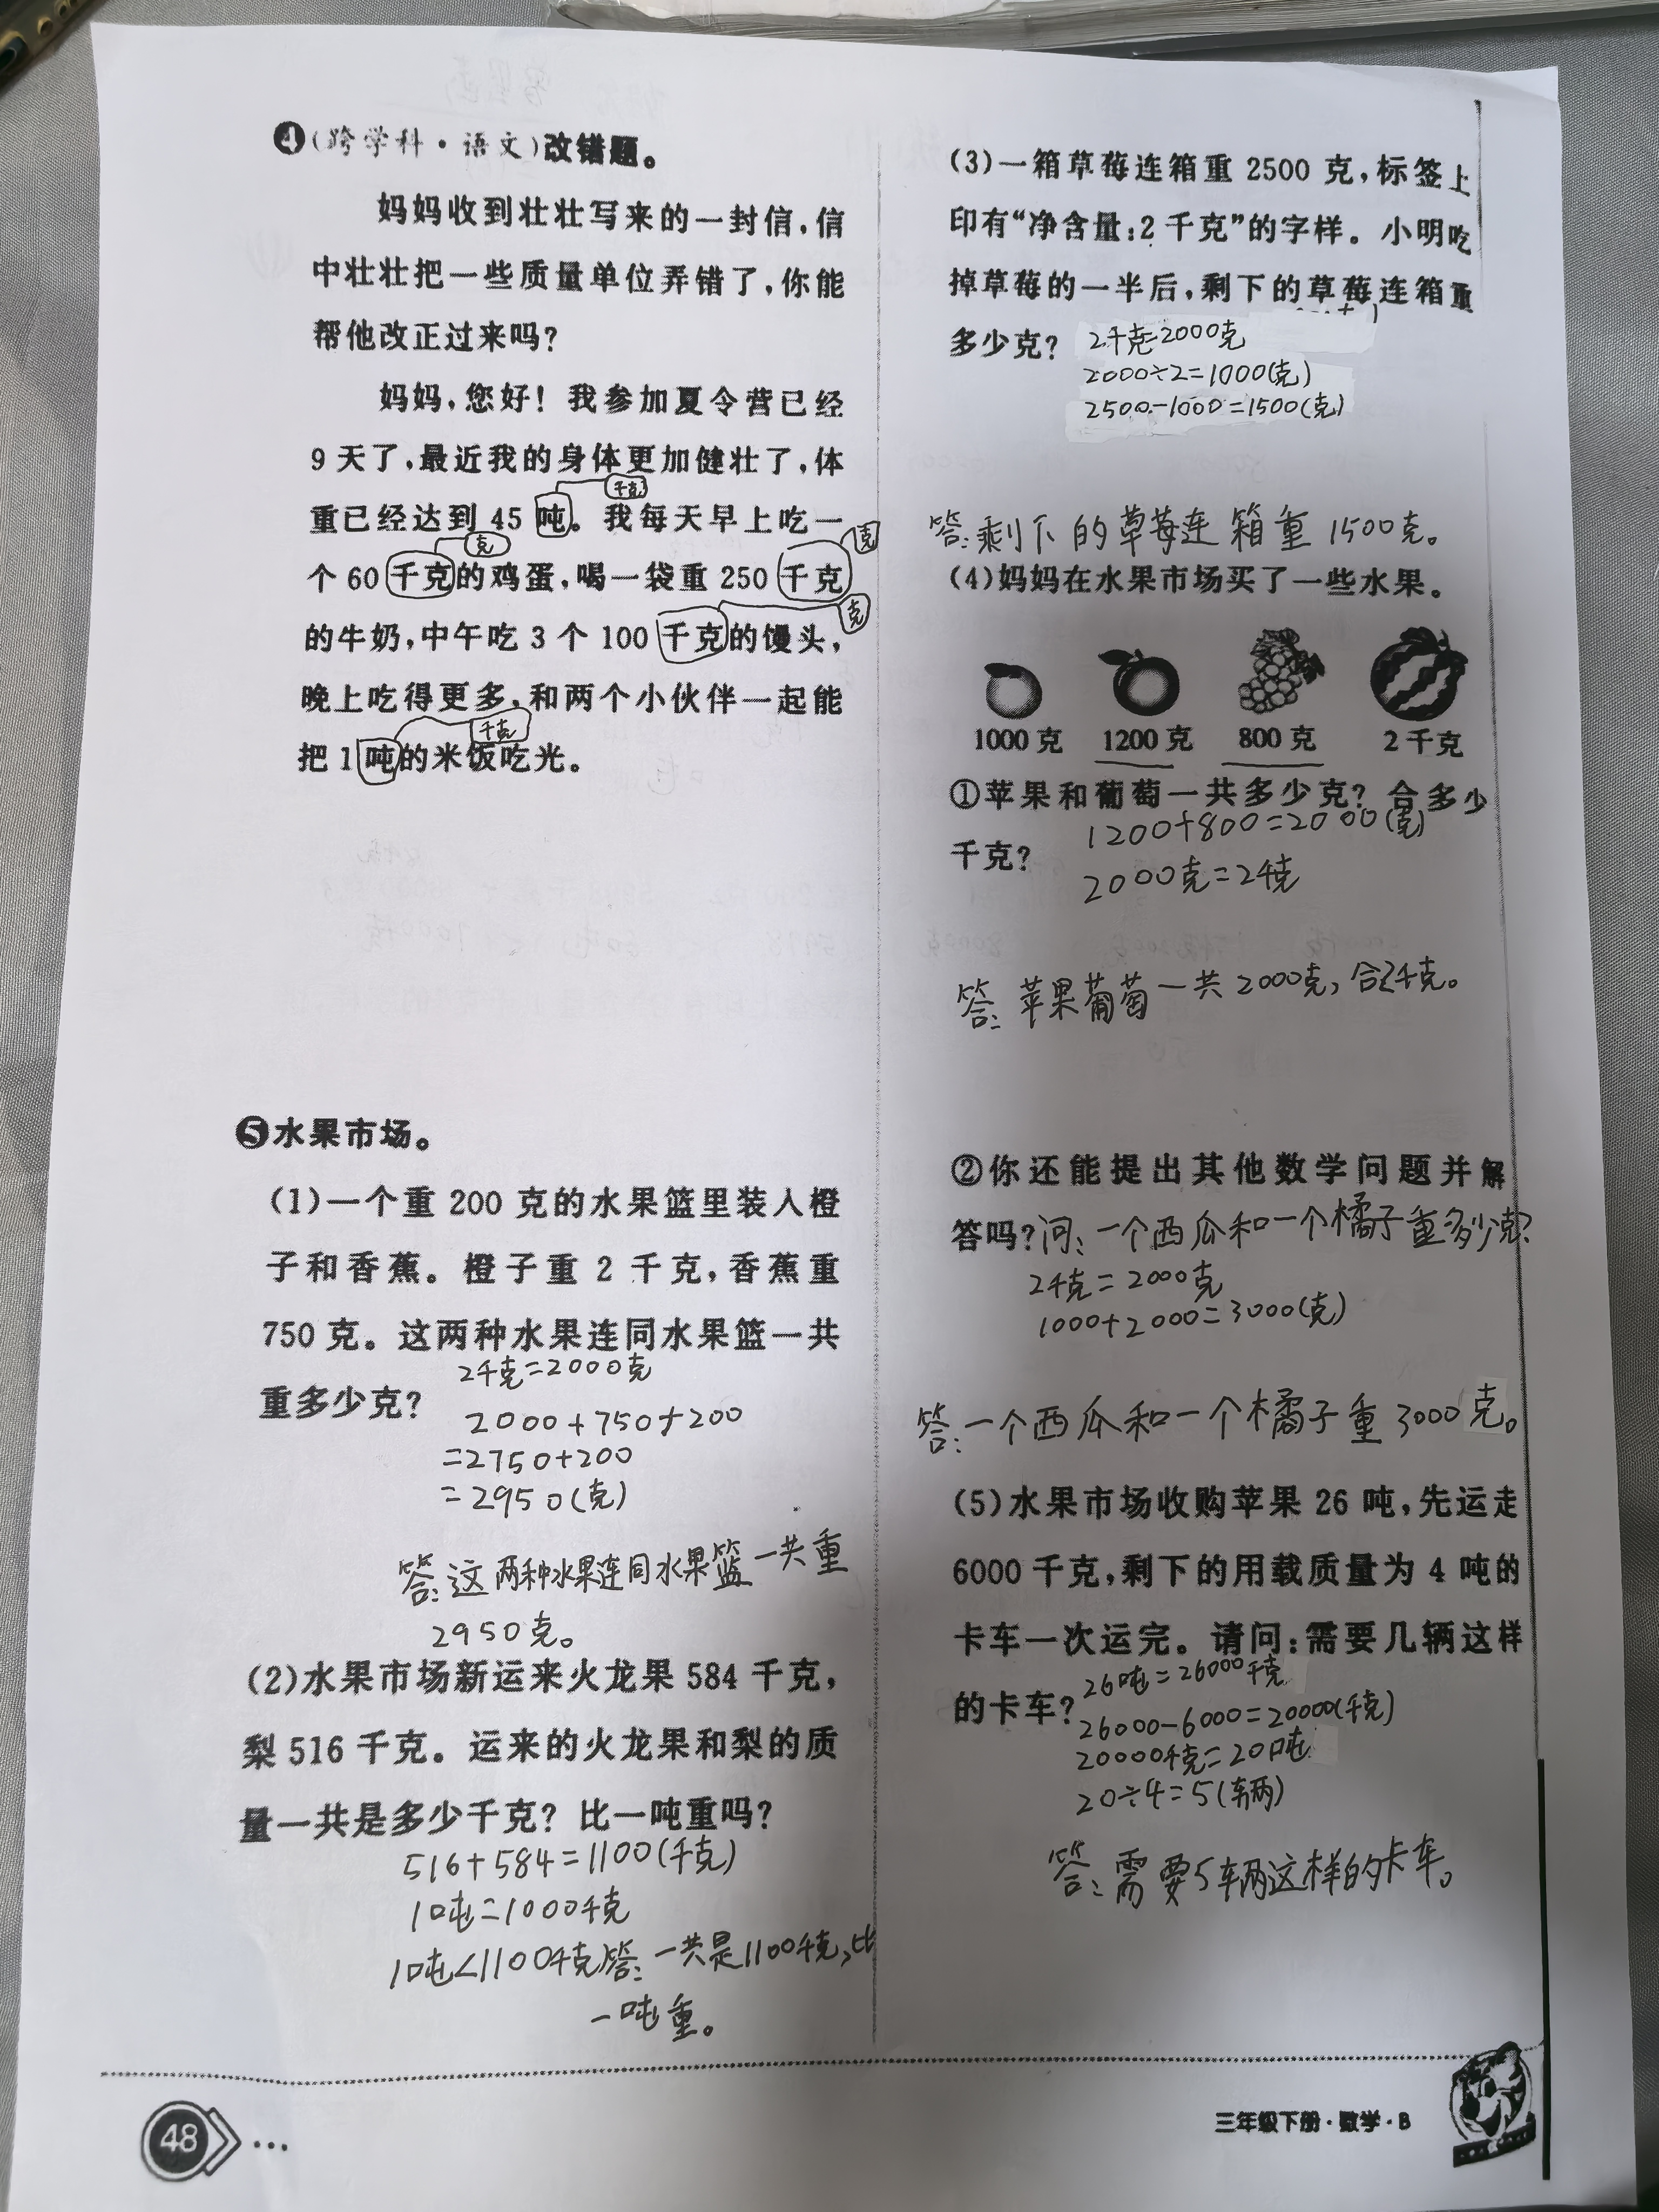 ❹(跨学科·语文)改错题。
妈妈收到壮壮写来的一封信,信
中壮壮把一些质量单位弄错了,你能
帮他改正过来吗?
妈妈,您好!我参加夏令营已经
9天了,最近我的身体更加健壮了,体
千克
重已经达到45吨。我每天早上吃一
克 克
个60千克的鸡蛋,喝一袋重250千克
克
的牛奶,中午吃3个100千克的馒头,
晚上吃得更多,和两个小伙伴一起能
千克
把1吨的米饭吃光。
❺水果市场。
(1)一个重200克的水果篮里装入橙
子和香蕉。橙子重2千克,香蕉重
750克。这两种水果连同水果篮一共
重多少克?
2千克=2000克
2000+750+200
=2750+200
=2950(克)
答:这两种水果连同水果篮一共重
2950克。
(2)水果市场新运来火龙果584千克,
梨516千克。运来的火龙果和梨的质
量一共是多少千克?比一吨重吗?
516+584=1100(千克)
1吨=1000千克
1吨<1100千克 答:一共是1100千克,比
一吨重。
(3)一箱草莓连箱重2500克,标签上
印有“净含量:2千克”的字样。小明吃
掉草莓的一半后,剩下的草莓连箱重
多少克?
2千克=2000克
2000÷2=1000(克)
2500-1000=1500(克)
答:剩下的草莓连箱重1500克。
(4)妈妈在水果市场买了一些水果。
1000克 1200克 800克 2千克
①苹果和葡萄一共多少克?合多少
千克?
1200+800=2000(克)
2000克=2千克
答:苹果葡萄一共2000克,合2千克。
②你还能提出其他数学问题并解
答吗?问:一个西瓜和一个橘子重多少克?
2千克=2000克
1000+2000=3000(克)
答:一个西瓜和一个橘子重3000克。
(5)水果市场收购苹果26吨,先运走
6000千克,剩下的用载质量为4吨的
卡车一次运完。请问:需要几辆这样
的卡车?
26吨=26000千克
26000-6000=20000(千克)
20000千克=20吨
20÷4=5(辆)
答:需要5辆这样的卡车。
48
三年级下册·数学·B